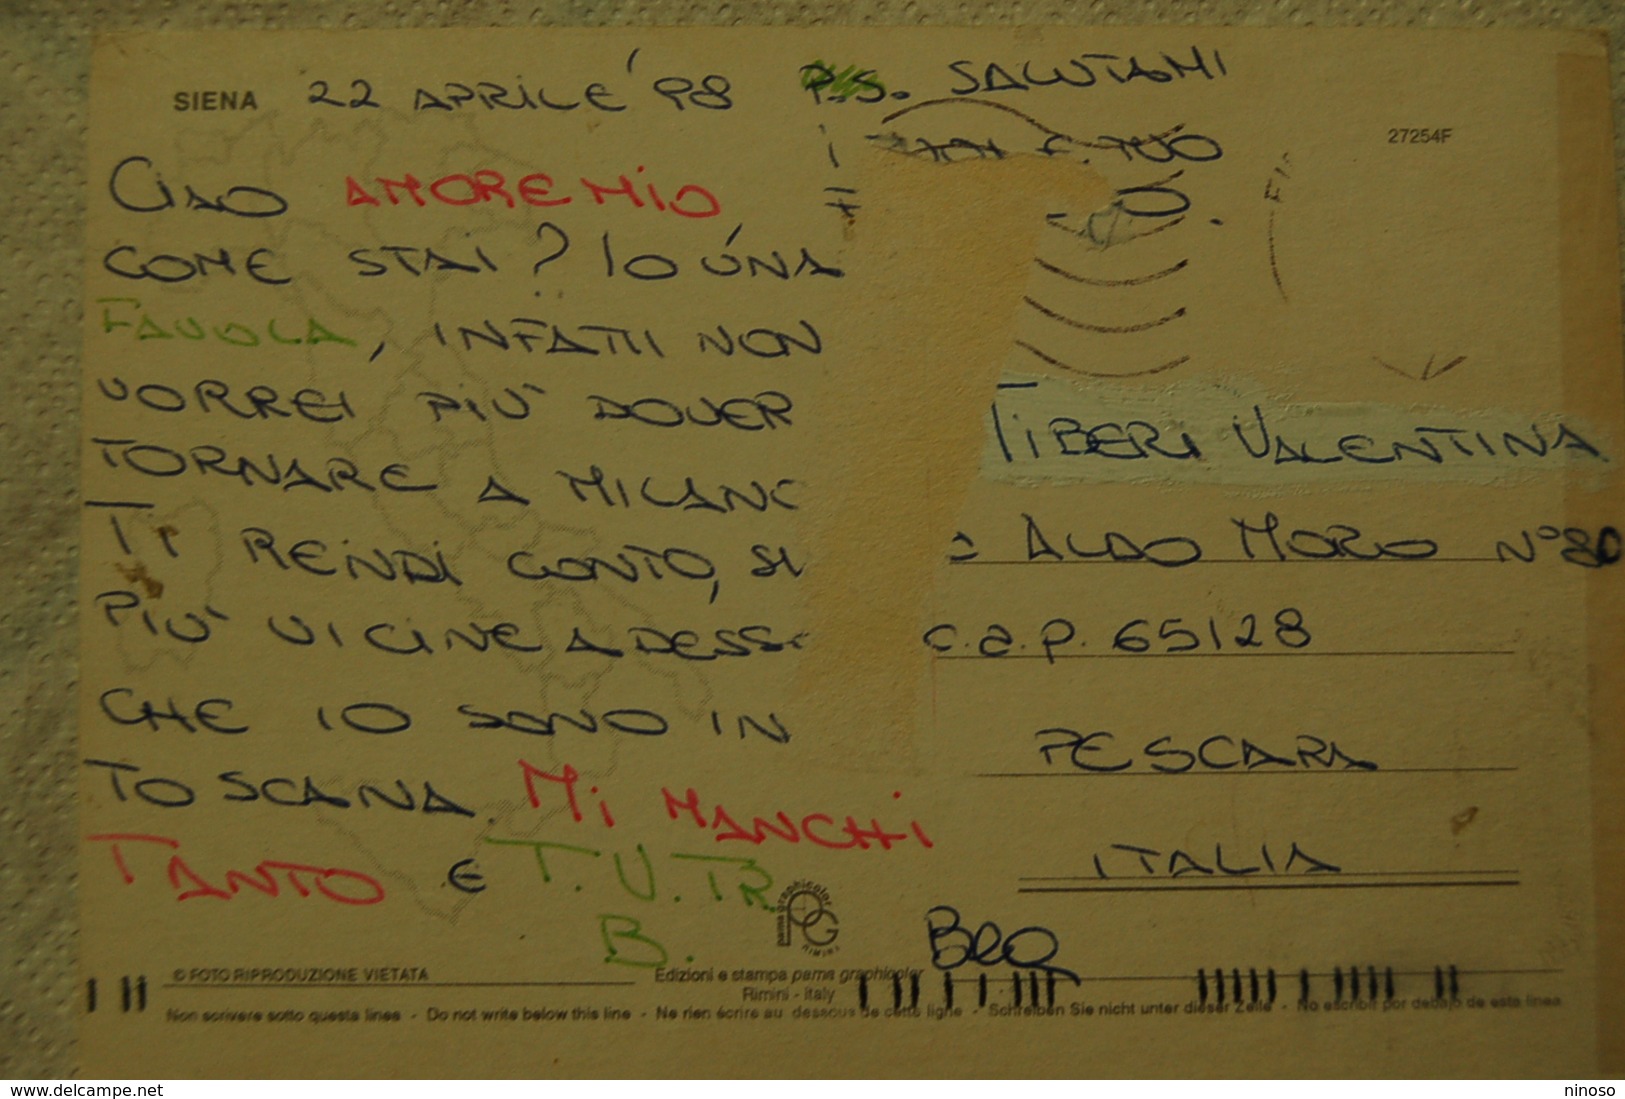 SIENA 22 APRILE '98
CIAO AMORE MIO
COME STAI? IO ÚNA
FAVOLA, INFATTI NON
VORREI PIÙ DOVER
TORNARE A MILANO
TI RENDI CONTO,
PIÙ VICINE ADESSO
CHE IO SONO IN
TOSCANA. MI MANCHI
TANTO E T.V.TR
B.
Bea
P.S. SALUTAMI
I E TUO
27254F
TIBERI VALENTINA
ALDO MORO N°80
C.a.P. 65128
PESCARA
ITALIA
pama graphicolor
PG
RIMINI
© FOTO RIPRODUZIONE VIETATA
Edizioni e stampa pama graphicolor
Rimini - Italy
Non scrivere sotto questa linea - Do not write below this line - Ne rien écrire au dessous de cette ligne - Schreiben Sie nicht unter dieser Zeile - No escribir por debajo de esta linea
www.delcampe.net
ninoso